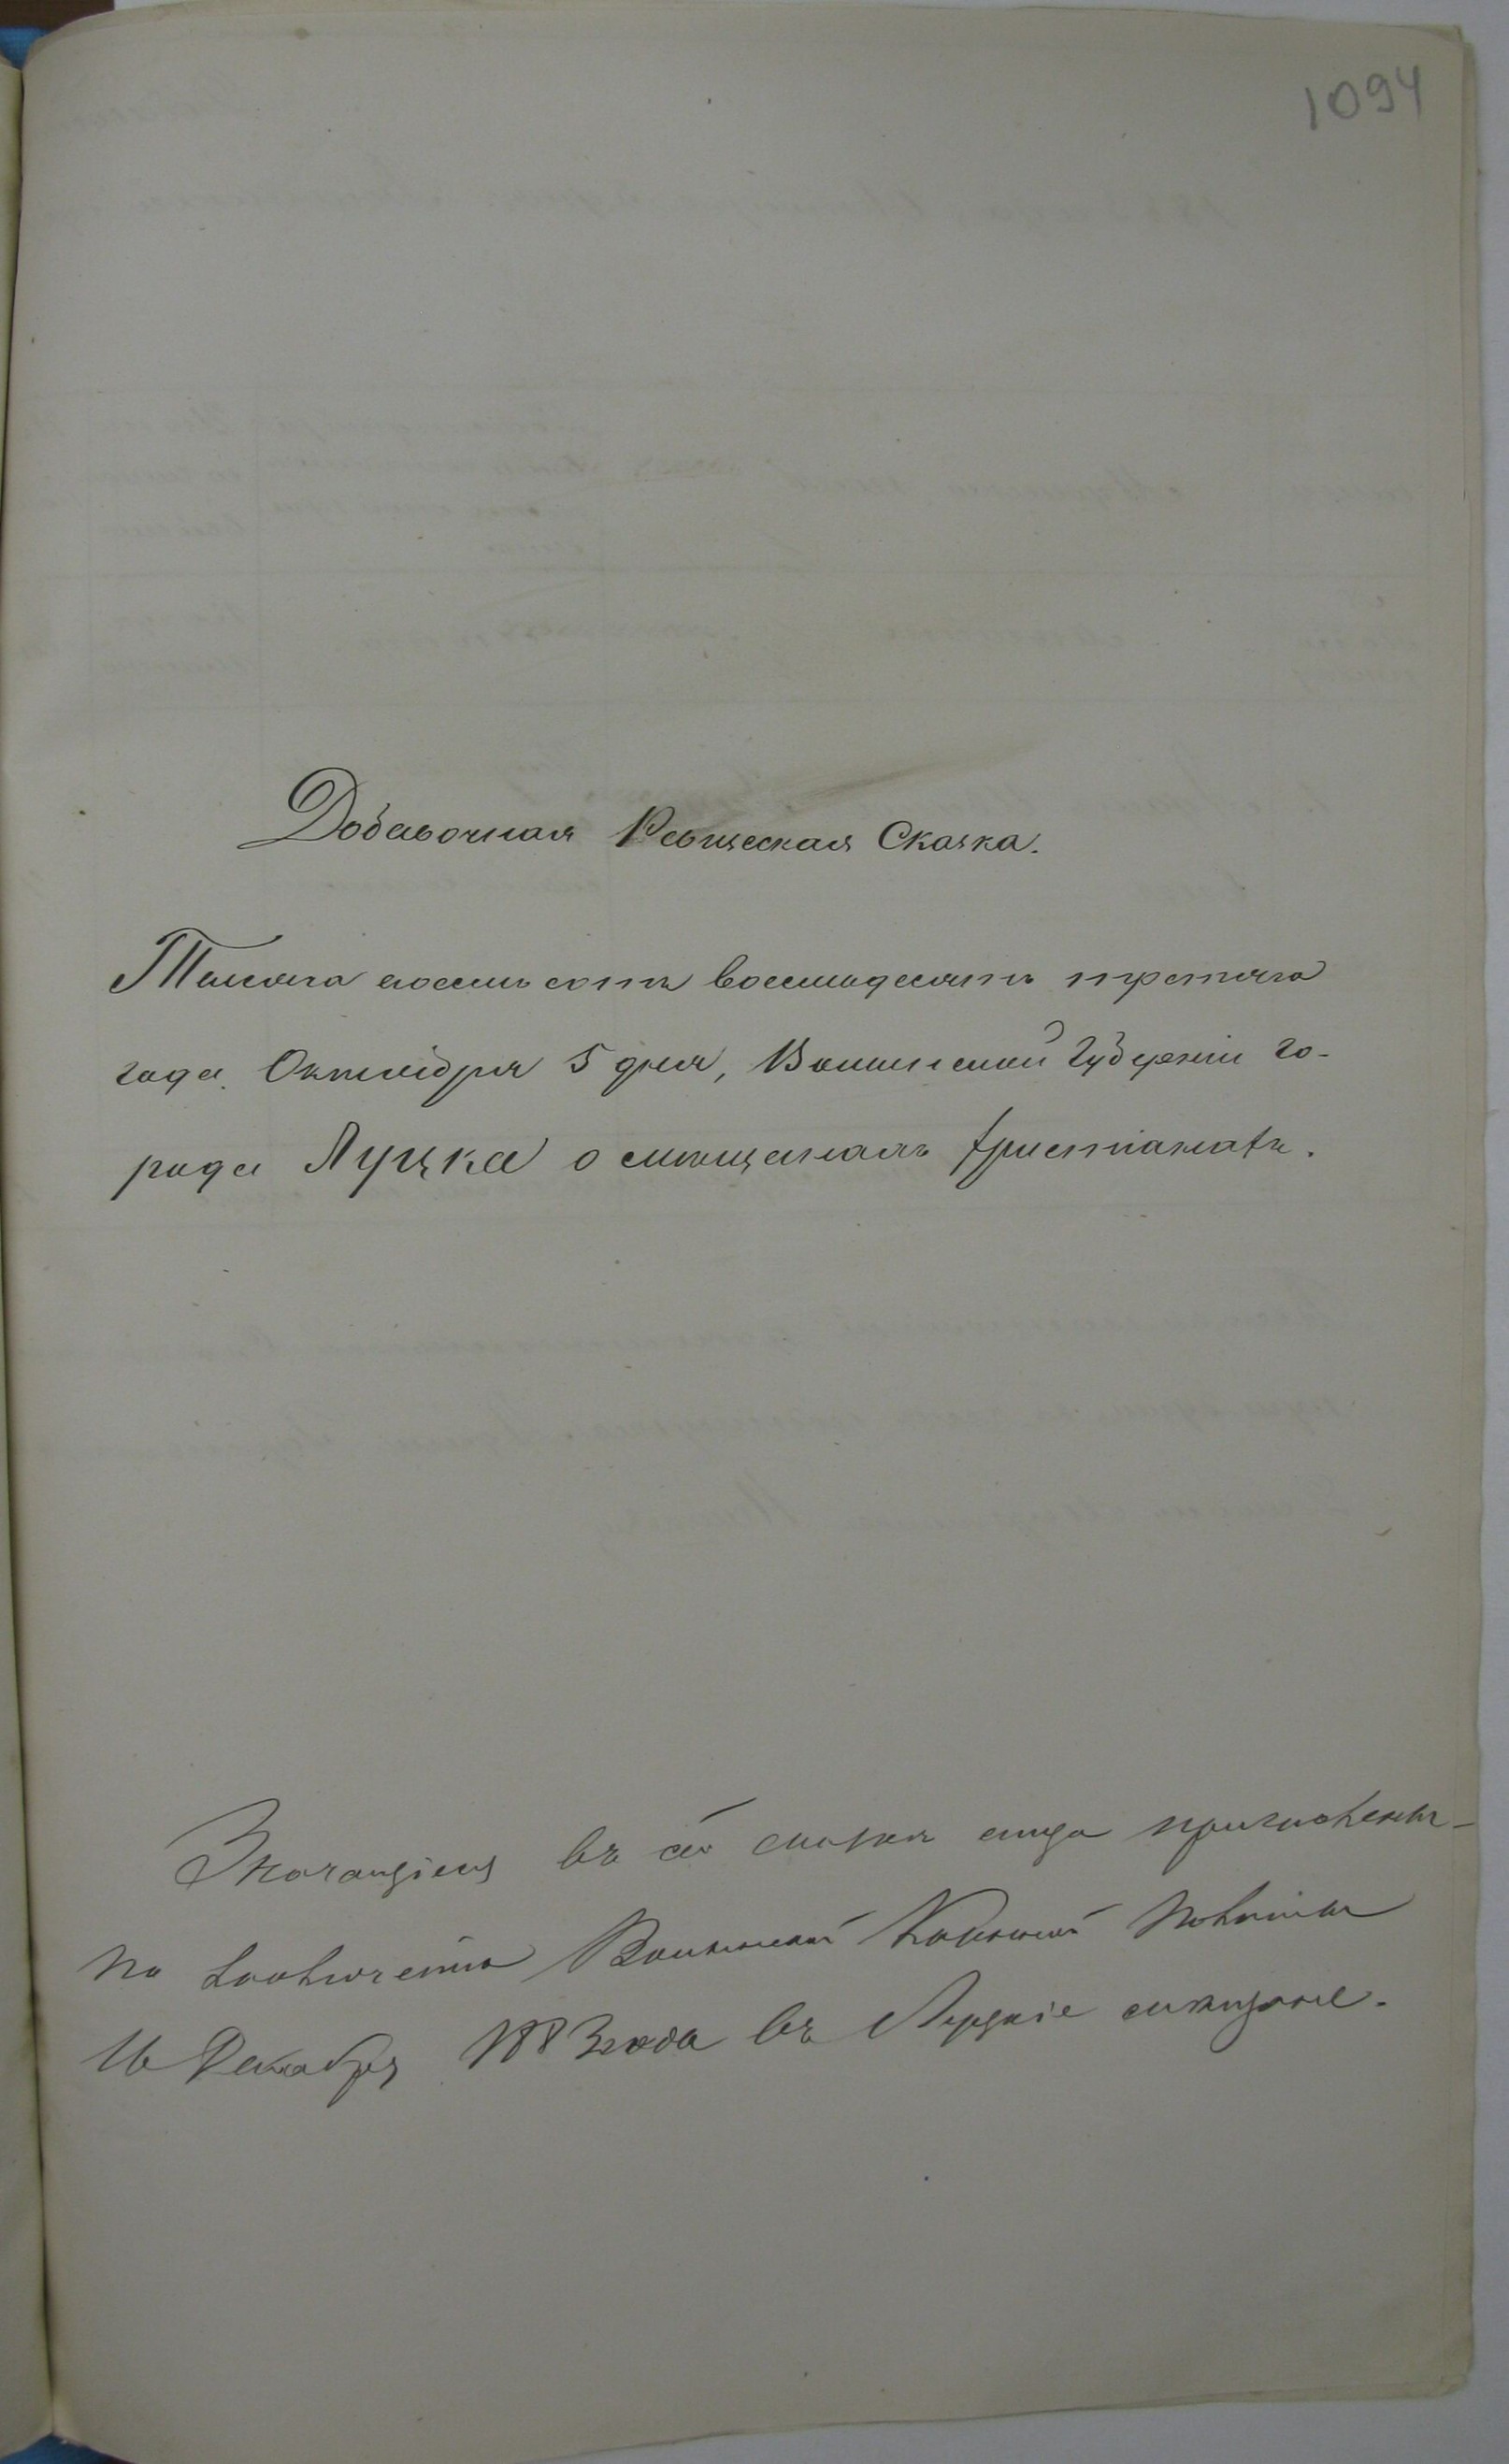 1094
Добавочная Ревизская Сказка.
Тысяча восемьсотъ восемьдесятъ третяго
года Октября 5 дня, Волынской Губерніи го-
рода Луцка о мѣщанахъ христіанахъ.
Значащіеся въ сей сказкѣ лица причислены
по Волынской Казенной Палаты
16 Декабря 1883 года въ Луцкіе мѣщане.